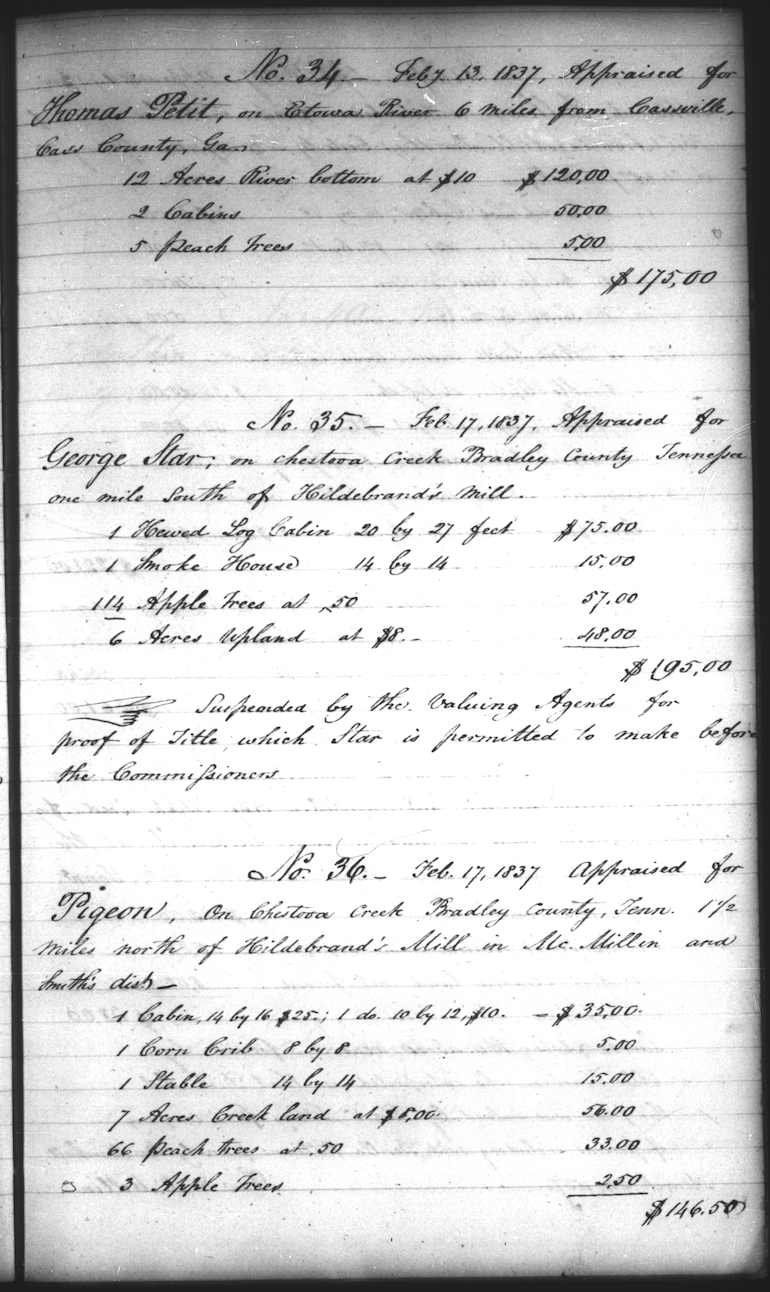 No. 34. – Feby 13, 1837, Appraised for
Thomas Petit, on Etowa River 6 miles from Cassville,
Cass County, Ga.
12 Acres River bottom at $10 $120,00
2 Cabins 50,00
5 Peach Trees 5,00
$175,00
No. 35. – Feb. 17, 1837, Appraised for
George Star, on Chestooa Creek Bradley County Tennessee
one mile South of Hildebrand's Mill.
1 Hewed Log Cabin 20 by 27 feet $75.00
1 Smoke House 14 by 14 15,00
114 Apple Trees at .50 57.00
6 Acres Upland at $8. – 48,00
$195,00
Suspended by the Valuing Agents for
proof of Title, which Star is permitted to make before
the Commissioners
No. 36. – Feb. 17, 1837 Appraised for
Pigeon, On Chestooa Creek Bradley County, Tenn. 1 1/2
miles north of Hildebrand's Mill in Mc.Millin and
Smith's dist –
1 Cabin, 14 by 16 $25.; 1 do. 10 by 12, $10. – $35,00.
1 Corn Crib 8 by 8 5,00
1 Stable 14 by 14 15.00
7 Acres Creek land at $8,00. 56.00
66 Peach trees at .50 33.00
3 Apple Trees 2,50
$146.50